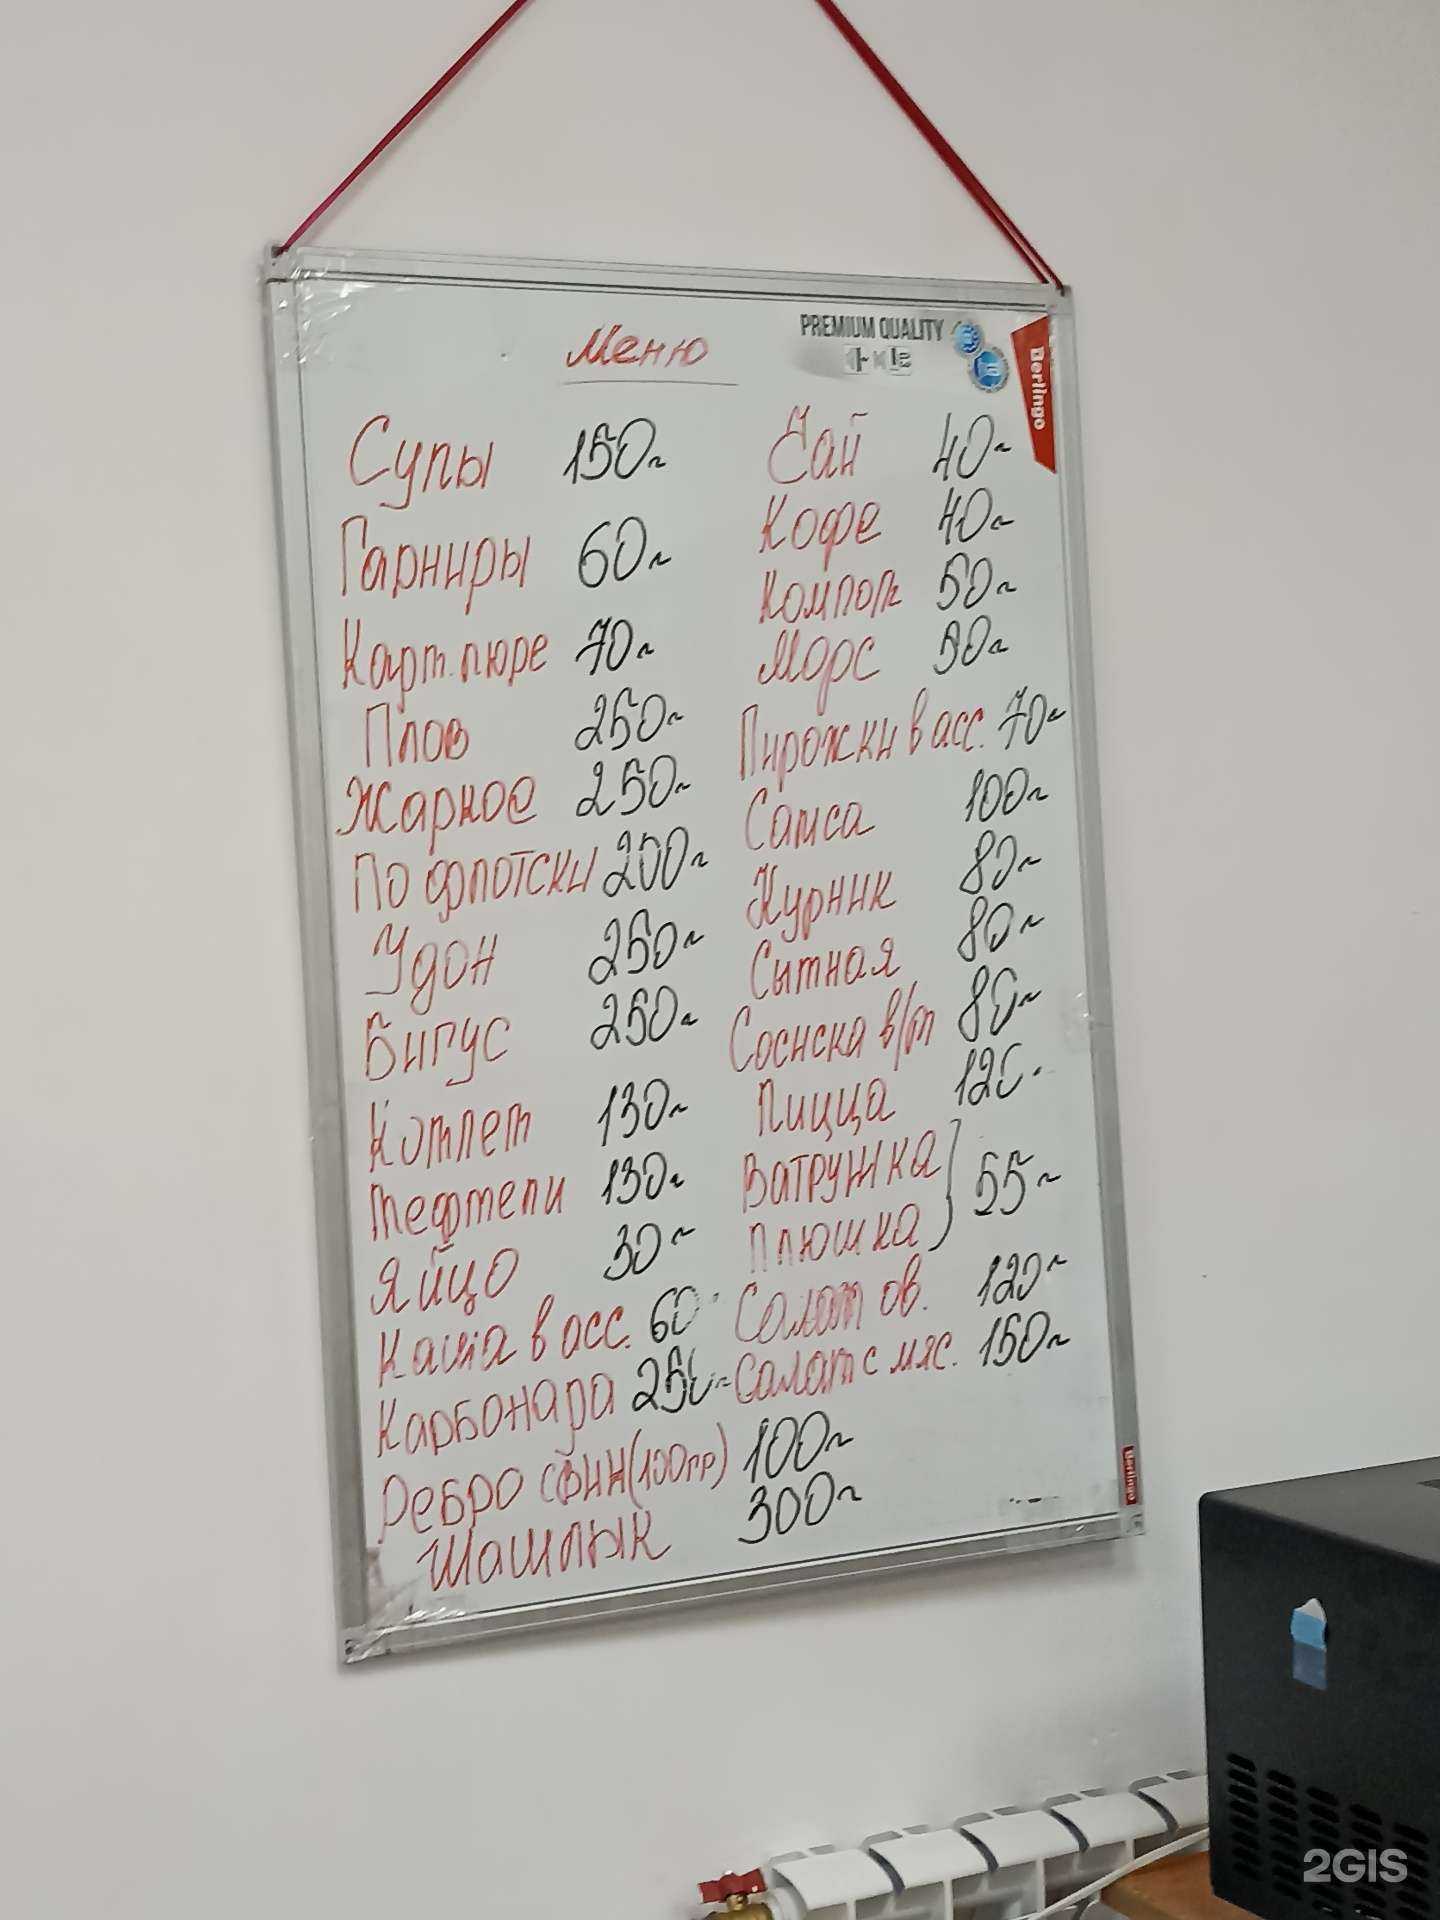 PREMIUM QUALITY
Berlingo
Меню
Супы 150~
Гарниры 60~
Карт. пюре 70~
Плов 250~
Жарное 250~
По флотски 200~
Удон 250~
Бигус 250~
Котлет 130~
Тефтели 130~
Яйцо 30~
Каша в асс. 60
Карбонара 250~
Ребро свин (100гр) 100~
Шашлык 300~
Чай 40~
Кофе 40~
Компот 50~
Морс 50~
Пирожки в асс. 70~
Самса 100~
Курник 80~
Сытная 80~
Сосиска в/т 80~
Пицца 120
Ватрушка
Плюшка } 55~
Салат ов. 120~
Салат с мяс. 150~
Berlingo
2GIS